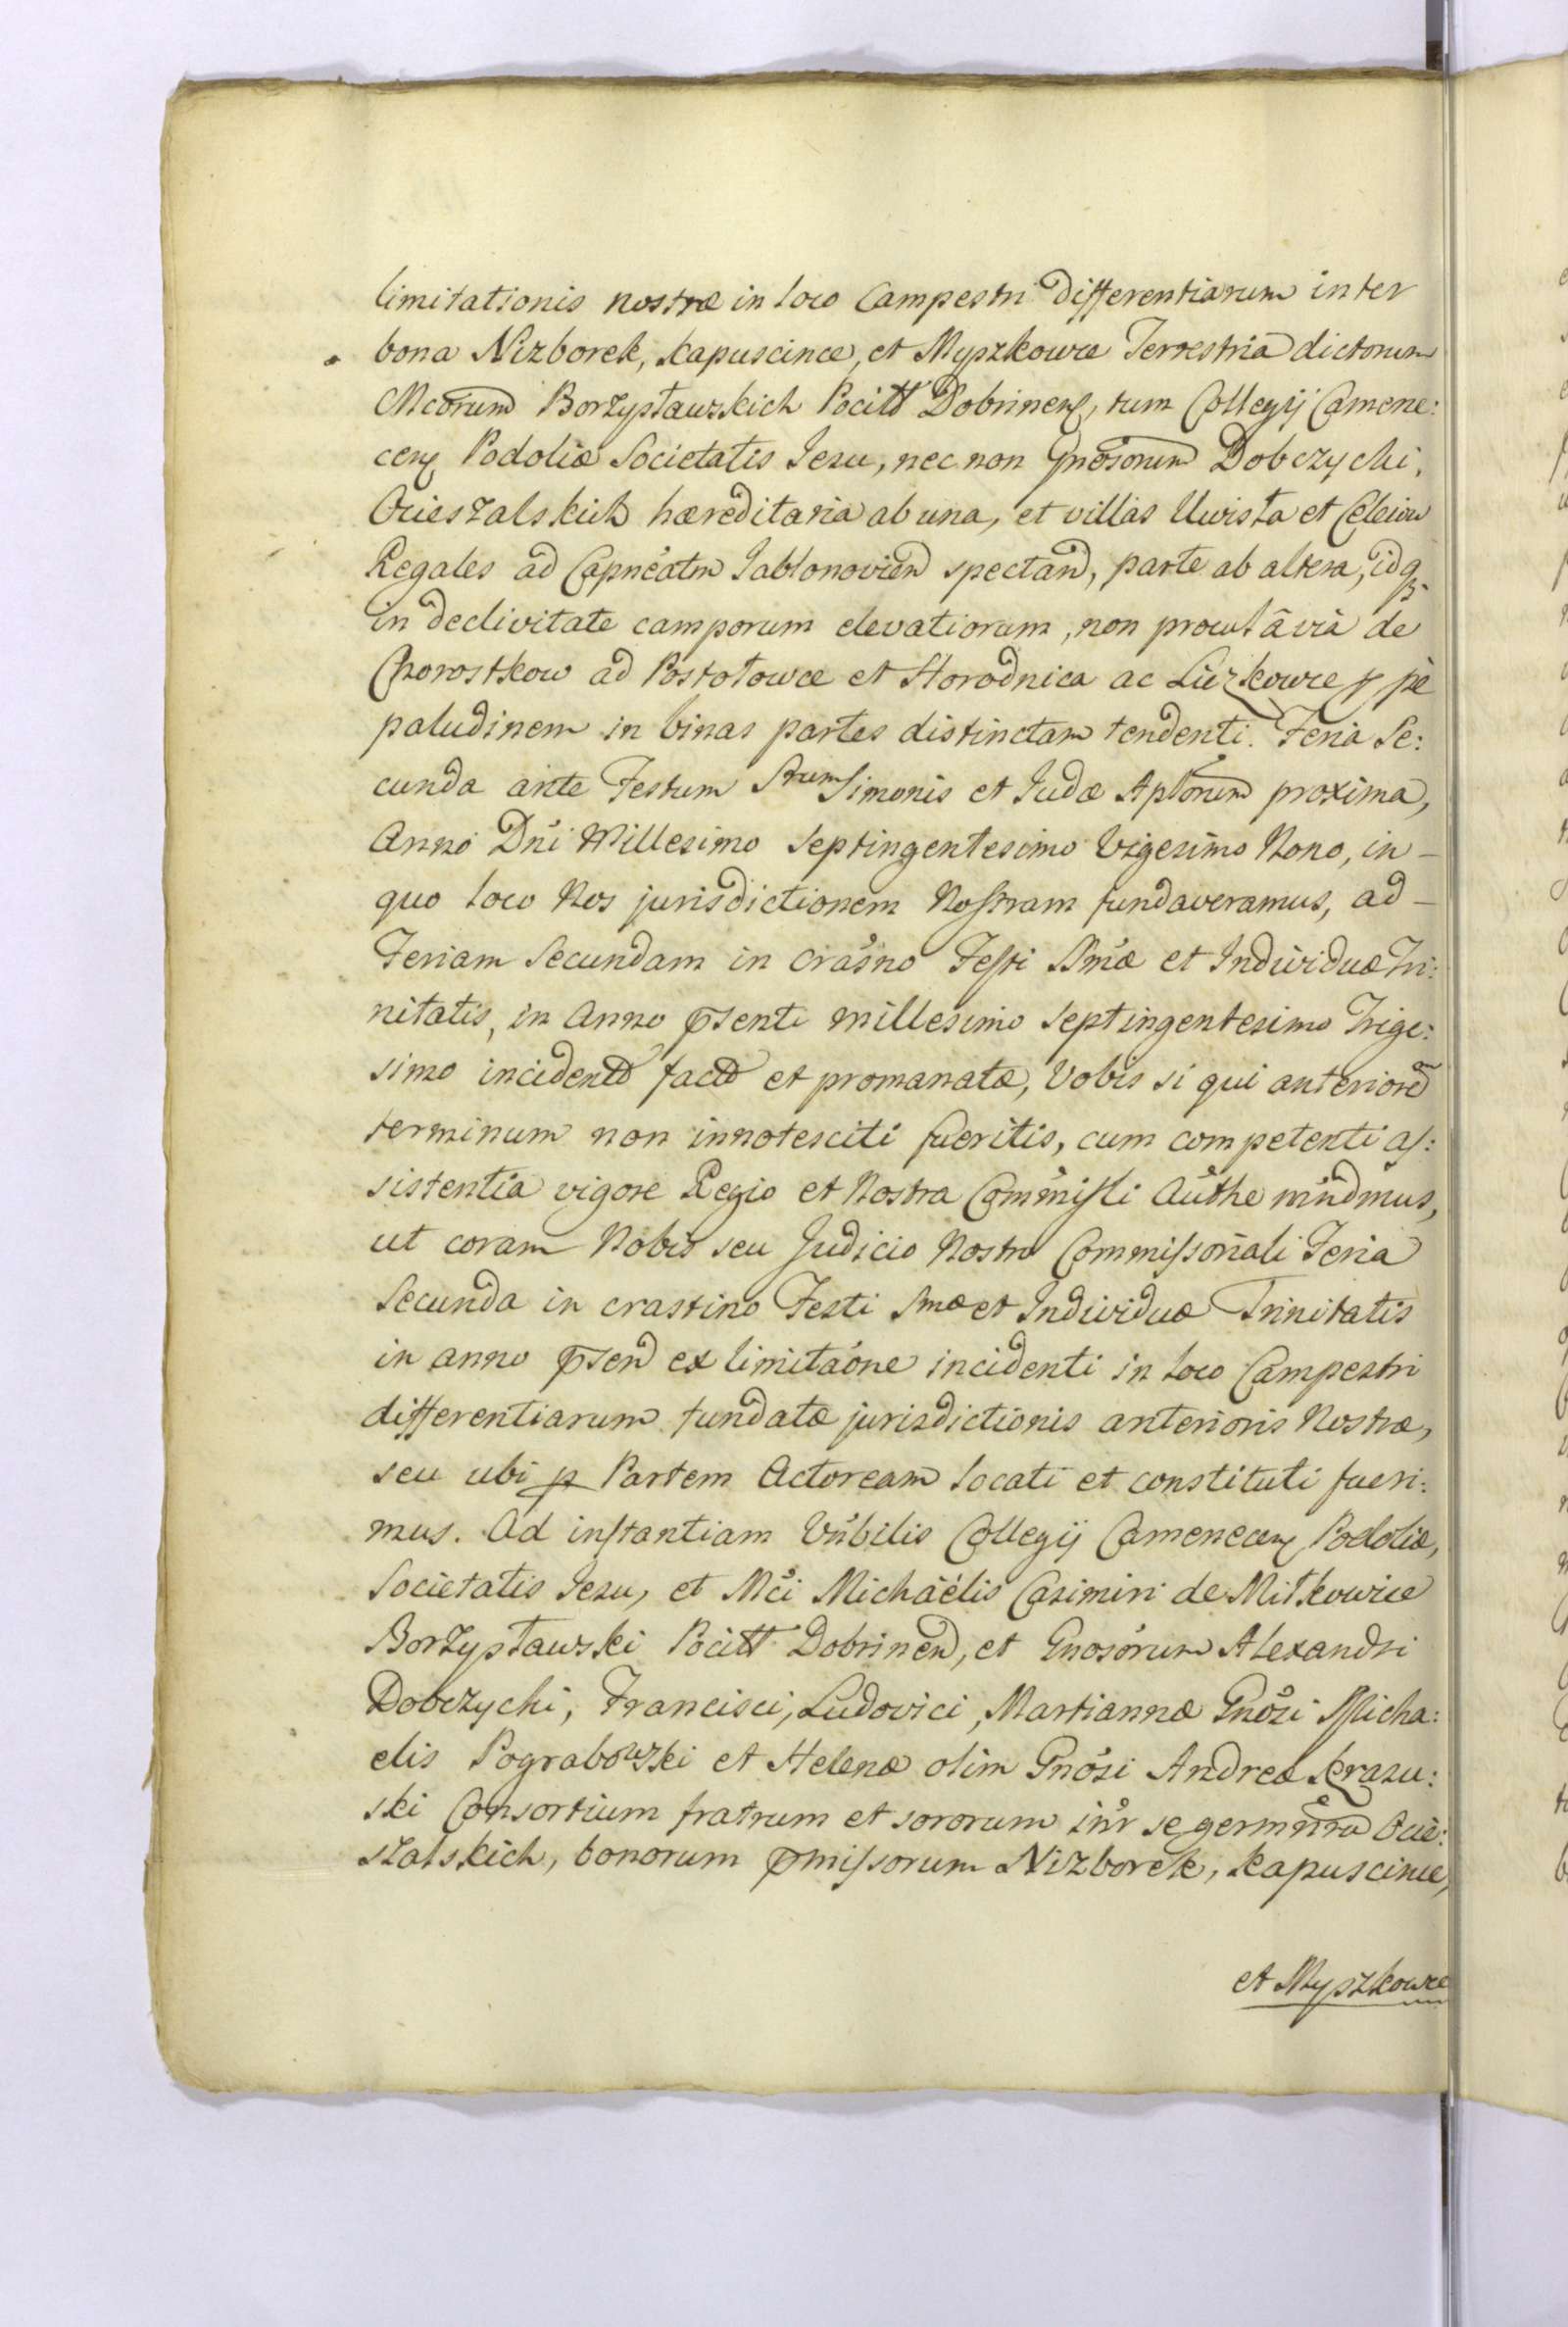 limitationis nostræ in loco Campestri differentiarum inter
bona Nizborek, Kapuscince, et Myszkowce Terrestria dictorum
Mcorum Borzysławskich Pocill Dobrinen, tum Collegij Camene:
cen Podoliæ Societatis Jesu, nec non Gnosorum Dobczychi,
Ocieszalskich hæreditaria ab una, et villas Uwisła et Celeiow
Regales ad Capneatm Jablonovien spectan, parte ab altera, idq
in declivitate camporum elevatiorum, non procul â via de
Chorostkow ad Postołowce et Horodnica ac Liczkowce p pe
paludinem in binas partes distinctam tendenti. Feria Se:
cunda ante Festum Strum Simonis et Judæ Aplorum proxima,
Anno Dni Millesimo Septingentesimo Vigesimo Nono, in –
quo loco Nos jurisdictionem Nostram fundaveramus, ad –
Feriam Secundam in crasno Festi Smæ et Individuæ Tri:
nitatis, in Anno pšenti millesimo Septingentesimo Trige:
simo incidente facte et promanatæ, Vobis si qui anteriore
terminum non innotesciti fueritis, cum competenti as:
sistentia vigore Regio et Nostra Commissli Authe mndmus,
ut coram Nobis seu Judicio Nostro Commissoriali Feria
Secunda in crastino Festi Smæ et Individuæ Trinitatis
in anno psen ex limitaone incidenti in loco Campestri
differentiarum fundatæ jurisdictionis anterioris Nostræ,
seu ubi p Partem Actoream locati et constituti fueri:
mus. Ad instantiam Vnbilis Collegij Camenecen Podoliæ,
Societatis Jesu, et Mci Michaelis Casimiri de Mitkowice
Borzysławski Pocill Dobrinen, et Gnosorum Alexandri
Dobczychi, Francisci, Ludovici, Martiannæ Gnosi Micha:
elis Pograbowski et Helenæ olim Gnosi Andreæ Krasu:
ski Consortium fratrum et sororum inr se germnru Ocie:
szalskich, bonorum pmissorum Nizborek, Kapuscince,
et Myszkowce